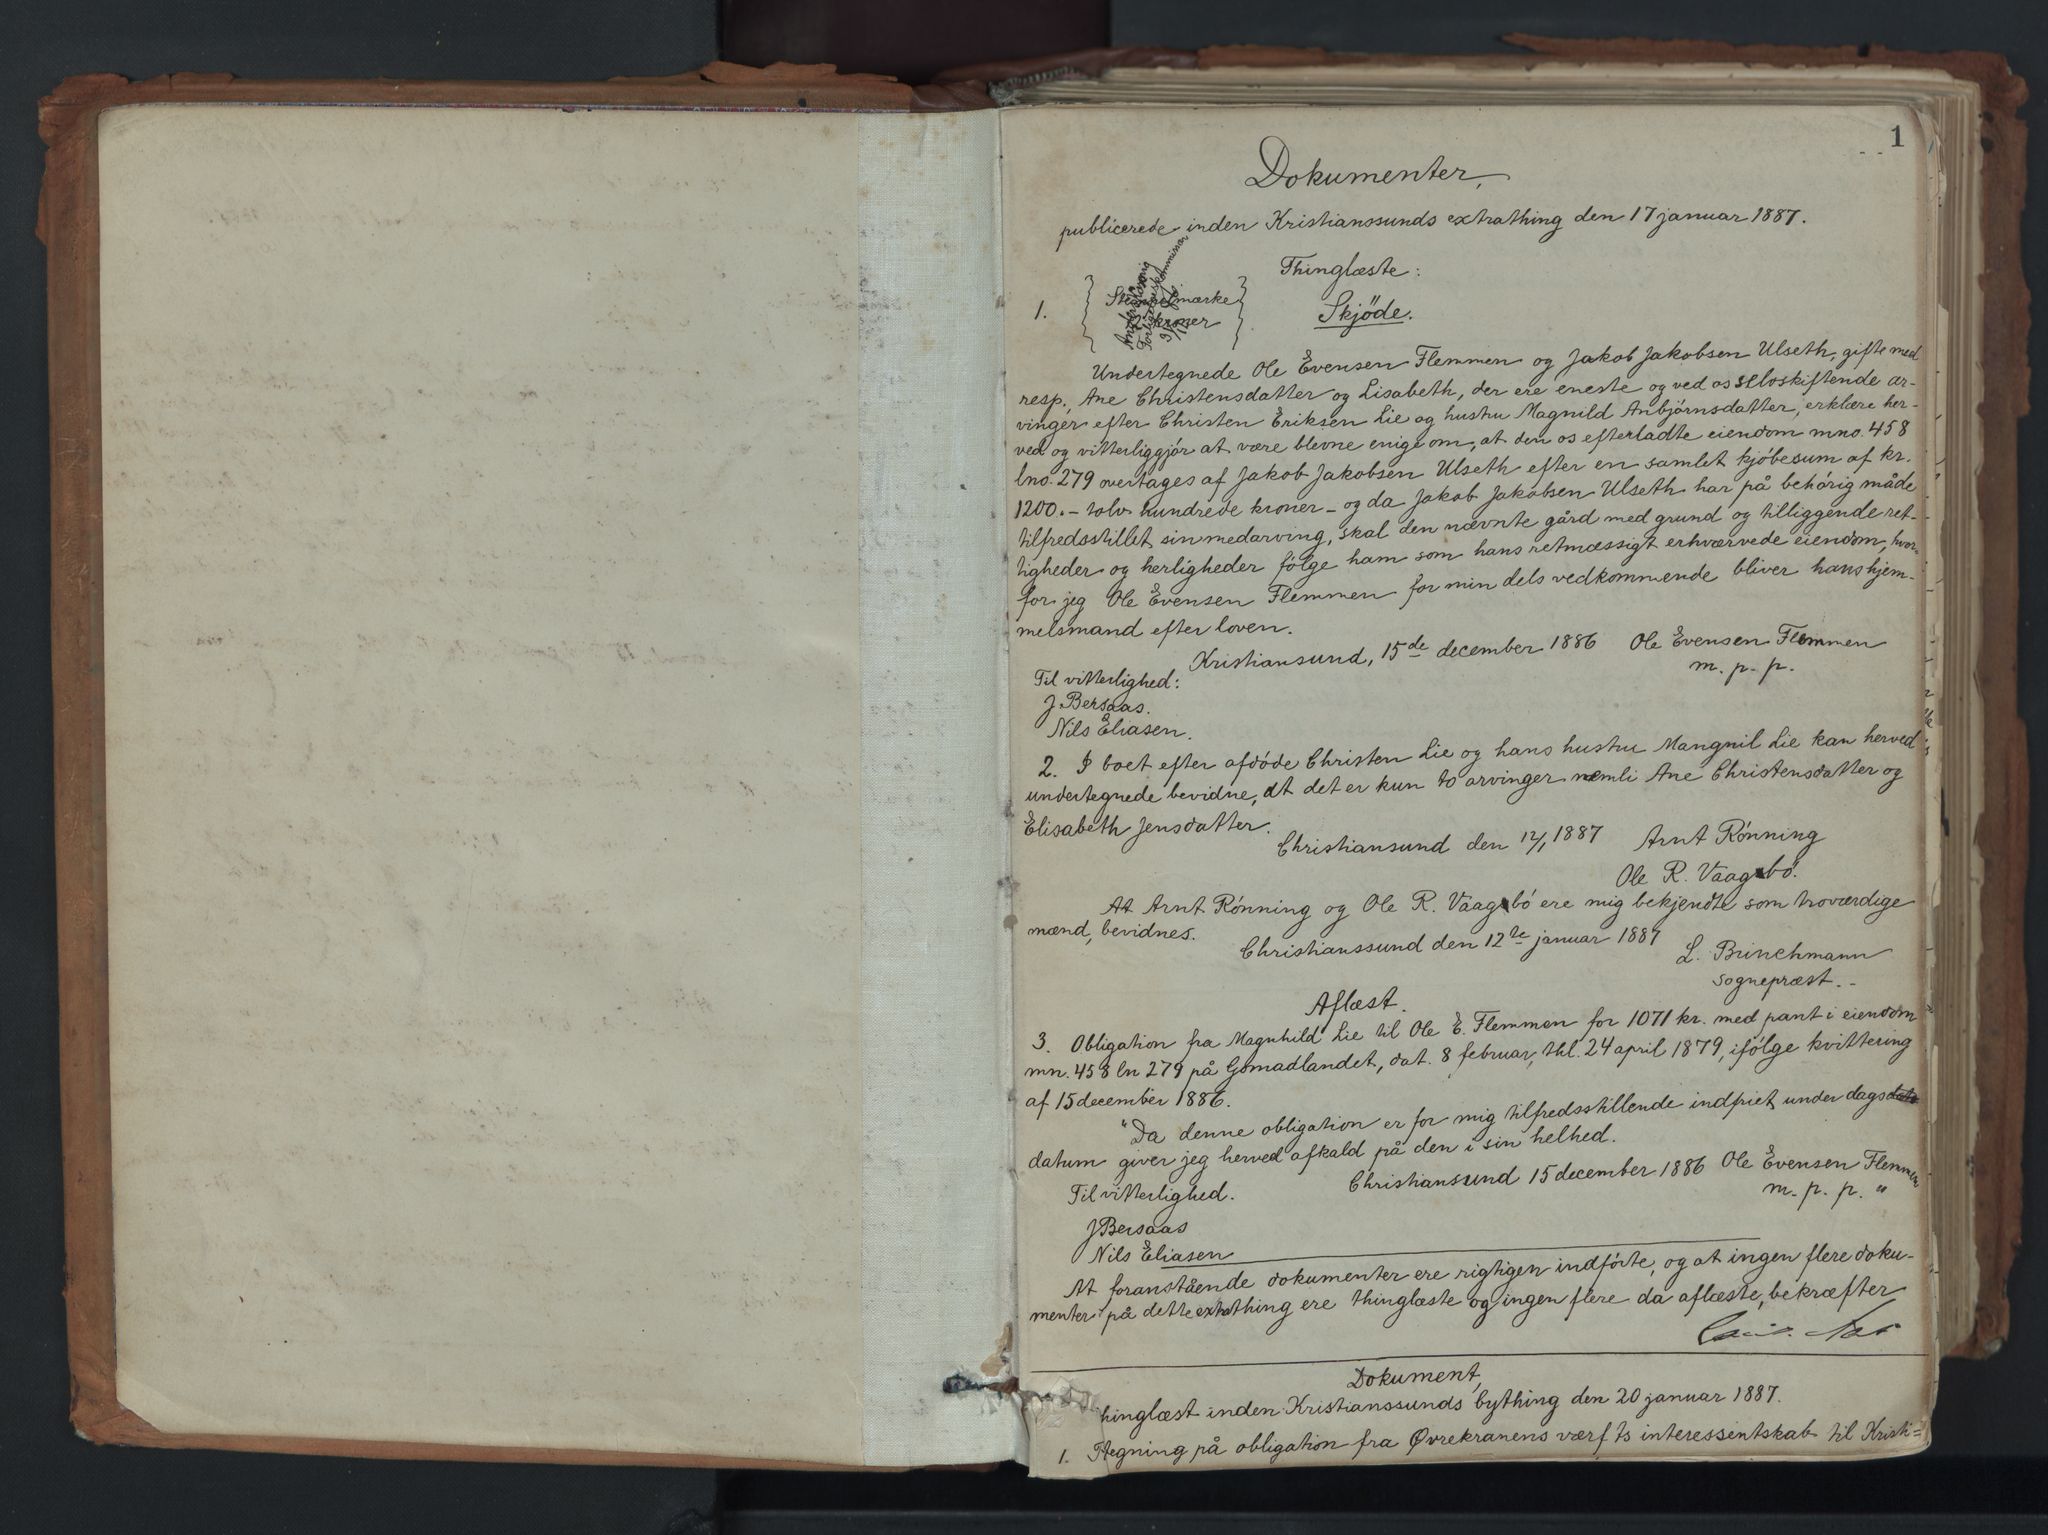 1
Dokumenter,
publicerede inden Kristianssunds extrathing den 17 januar 1887.
Thinglæste:
1. Stempelmærke kroner
Skjöde.
Undertegnede Ole Evensen Flemmen og Jakob Jakobsen Ulseth, gifte med
resp. Ane Christensdatter og Lisabeth, der ere eneste og ved os selvskiftende ar-
vinger efter Christen Eriksen Lie og hustru Magnild Anbjörnsdatter, erklære her-
ved og vitterliggjör at være blevne enige om, at den os efterladte eiendom mno. 458
lno. 279 overtages af Jakob Jakobsen Ulseth efter en samlet kjöbesum af kr.
1200.- tolv hundrede kroner - og da Jakob Jakobsen Ulseth har på behörig måde
tilfredsstillet sin medarving, skal den nævnte gård med grund og tilliggende ret-
tigheder og herligheder fölge ham som hans retmæssigt erhværvede eiendom, hvor-
for jeg Ole Evensen Flemmen for min dels vedkommende bliver hans hjem-
melsmand efter loven.
Kristiansund, 15de december 1886 Ole Evensen Flemmen
m. p. p.
Til vitterlighed:
J Bersaas.
Nils Eliasen.
2. I boet efter afdöde Christen Lie og hans hustru Mangnil Lie kan herved
undertegnede bevidne, at det er kun to arvinger nemli Ane Christensdatter og
Elisabeth Jensdatter.
Christiansund den 12/1 1887 Arnt Rönning
Ole R. Vaagbö.
At Arnt Rönning og Ole R. Vaagbö ere mig bekjendte som troværdige
mænd, bevidnes.
Christianssund den 12te januar 1887
L. Brinchmann
sognepræst.
Aflæst.
3. Obligation fra Magnhild Lie til Ole E. Flemmen for 1071 kr. med pant i eiendom
mn. 458 ln 279 på Gomadlandet, dat. 8 februar, thl. 24 april 1879, ifölge kvittering
af 15 december 1886.
"Da denne obligation er for mig tilfredsstillende indfriet under dags
datum giver jeg herved afkald på den i sin helhed.
Christiansund 15 december 1886 Ole Evensen Flemmen
m. p. p. "
Til vitterlighed.
J Bersaas
Nils Eliasen
At foranstående dokumenter ere rigtigen indförte, og at ingen flere doku-
menter på dette extrathing ere thinglæste og ingen flere da aflæste, bekræfter
Dokument,
hinglæst inden Kristianssunds bything den 20 januar 1887.
1. Tegning på obligation fra Øvrekranens værfts interessentskab til Kristi=